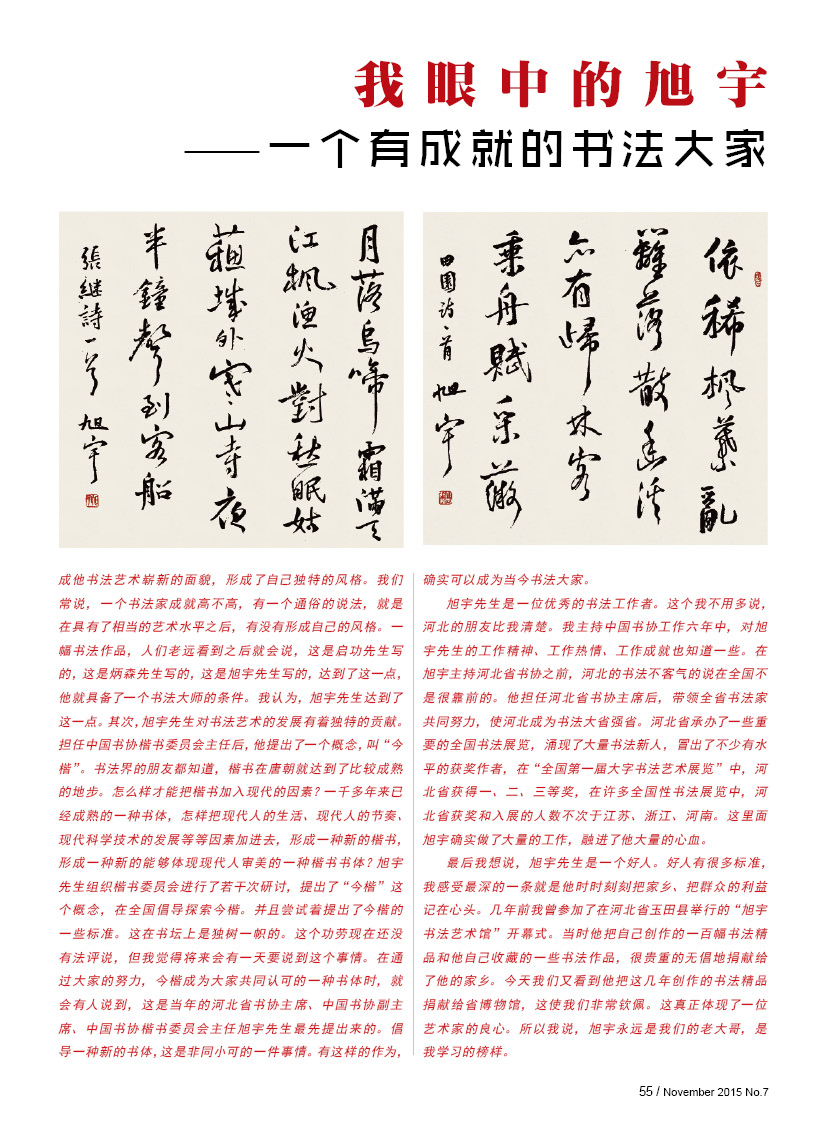 我眼中的旭宇
——一个有成就的书法大家
月落烏啼霜滿天
江楓漁火對愁眠姑
蘓城外寒山寺夜
半鐘聲到客船
張继詩一首 旭宇
依稀楓葉亂
籬落散幽溪
亦有歸林客
乘舟賦采薇
田園詩一首 旭宇
成他书法艺术崭新的面貌，形成了自己独特的风格。我们
常说，一个书法家成就高不高，有一个通俗的说法，就是
在具有了相当的艺术水平之后，有没有形成自己的风格。一
幅书法作品，人们老远看到之后就会说，这是启功先生写
的，这是炳森先生写的，这是旭宇先生写的，达到了这一点，
他就具备了一个书法大师的条件。我认为，旭宇先生达到了
这一点。其次，旭宇先生对书法艺术的发展有着独特的贡献。
担任中国书协楷书委员会主任后，他提出了一个概念，叫“今
楷”。书法界的朋友都知道，楷书在唐朝就达到了比较成熟
的地步。怎么样才能把楷书加入现代的因素？一千多年来已
经成熟的一种书体，怎样把现代人的生活、现代人的节奏、
现代科学技术的发展等等因素加进去，形成一种新的楷书，
形成一种新的能够体现现代人审美的一种楷书书体？旭宇
先生组织楷书委员会进行了若干次研讨，提出了“今楷”这
个概念，在全国倡导探索今楷。并且尝试着提出了今楷的
一些标准。这在书坛上是独树一帜的。这个功劳现在还没
有法评说，但我觉得将来会有一天要说到这个事情。在通
过大家的努力，今楷成为大家共同认可的一种书体时，就
会有人说到，这是当年的河北省书协主席、中国书协副主
席、中国书协楷书委员会主任旭宇先生最先提出来的。倡
导一种新的书体，这是非同小可的一件事情。有这样的作为，
确实可以成为当今书法大家。
旭宇先生是一位优秀的书法工作者。这个我不用多说，
河北的朋友比我清楚。我主持中国书协工作六年中，对旭
宇先生的工作精神、工作热情、工作成就也知道一些。在
旭宇主持河北省书协之前，河北的书法不客气的说在全国不
是很靠前的。他担任河北省书协主席后，带领全省书法家
共同努力，使河北成为书法大省强省。河北省承办了一些重
要的全国书法展览，涌现了大量书法新人，冒出了不少有水
平的获奖作者，在“全国第一届大字书法艺术展览”中，河
北省获得一、二、三等奖，在许多全国性书法展览中，河
北省获奖和入展的人数不次于江苏、浙江、河南。这里面
旭宇确实做了大量的工作，融进了他大量的心血。
最后我想说，旭宇先生是一个好人。好人有很多标准，
我感受最深的一条就是他时时刻刻把家乡、把群众的利益
记在心头。几年前我曾参加了在河北省玉田县举行的“旭宇
书法艺术馆”开幕式。当时他把自己创作的一百幅书法精
品和他自己收藏的一些书法作品，很贵重的无倡地捐献给
了他的家乡。今天我们又看到他把这几年创作的书法精品
捐献给省博物馆，这使我们非常钦佩。这真正体现了一位
艺术家的良心。所以我说，旭宇永远是我们的老大哥，是
我学习的榜样。
55 / November 2015 No.7